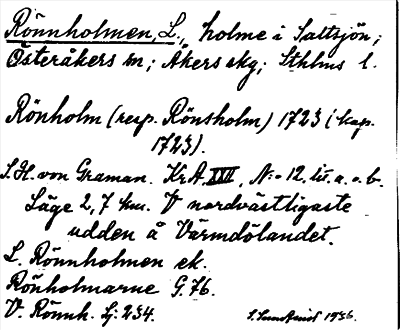 Rönnholmen, L., holme i Saltsjön;
Österåkers sn; Åkers skg; Sthlms l.
Rönholm (resp. Rönsholm) 1723 (kop.
1723).
S. H. von Graman. KrA XXII, N:o 12, lit. a. o. b.
Läge 2,7 km. V nordvästligaste
udden å Värmdölandet.
L. Rönnholmen ek.
Rönholmarne G. 76.
V. Rönnh. Lj: 234.
1936.